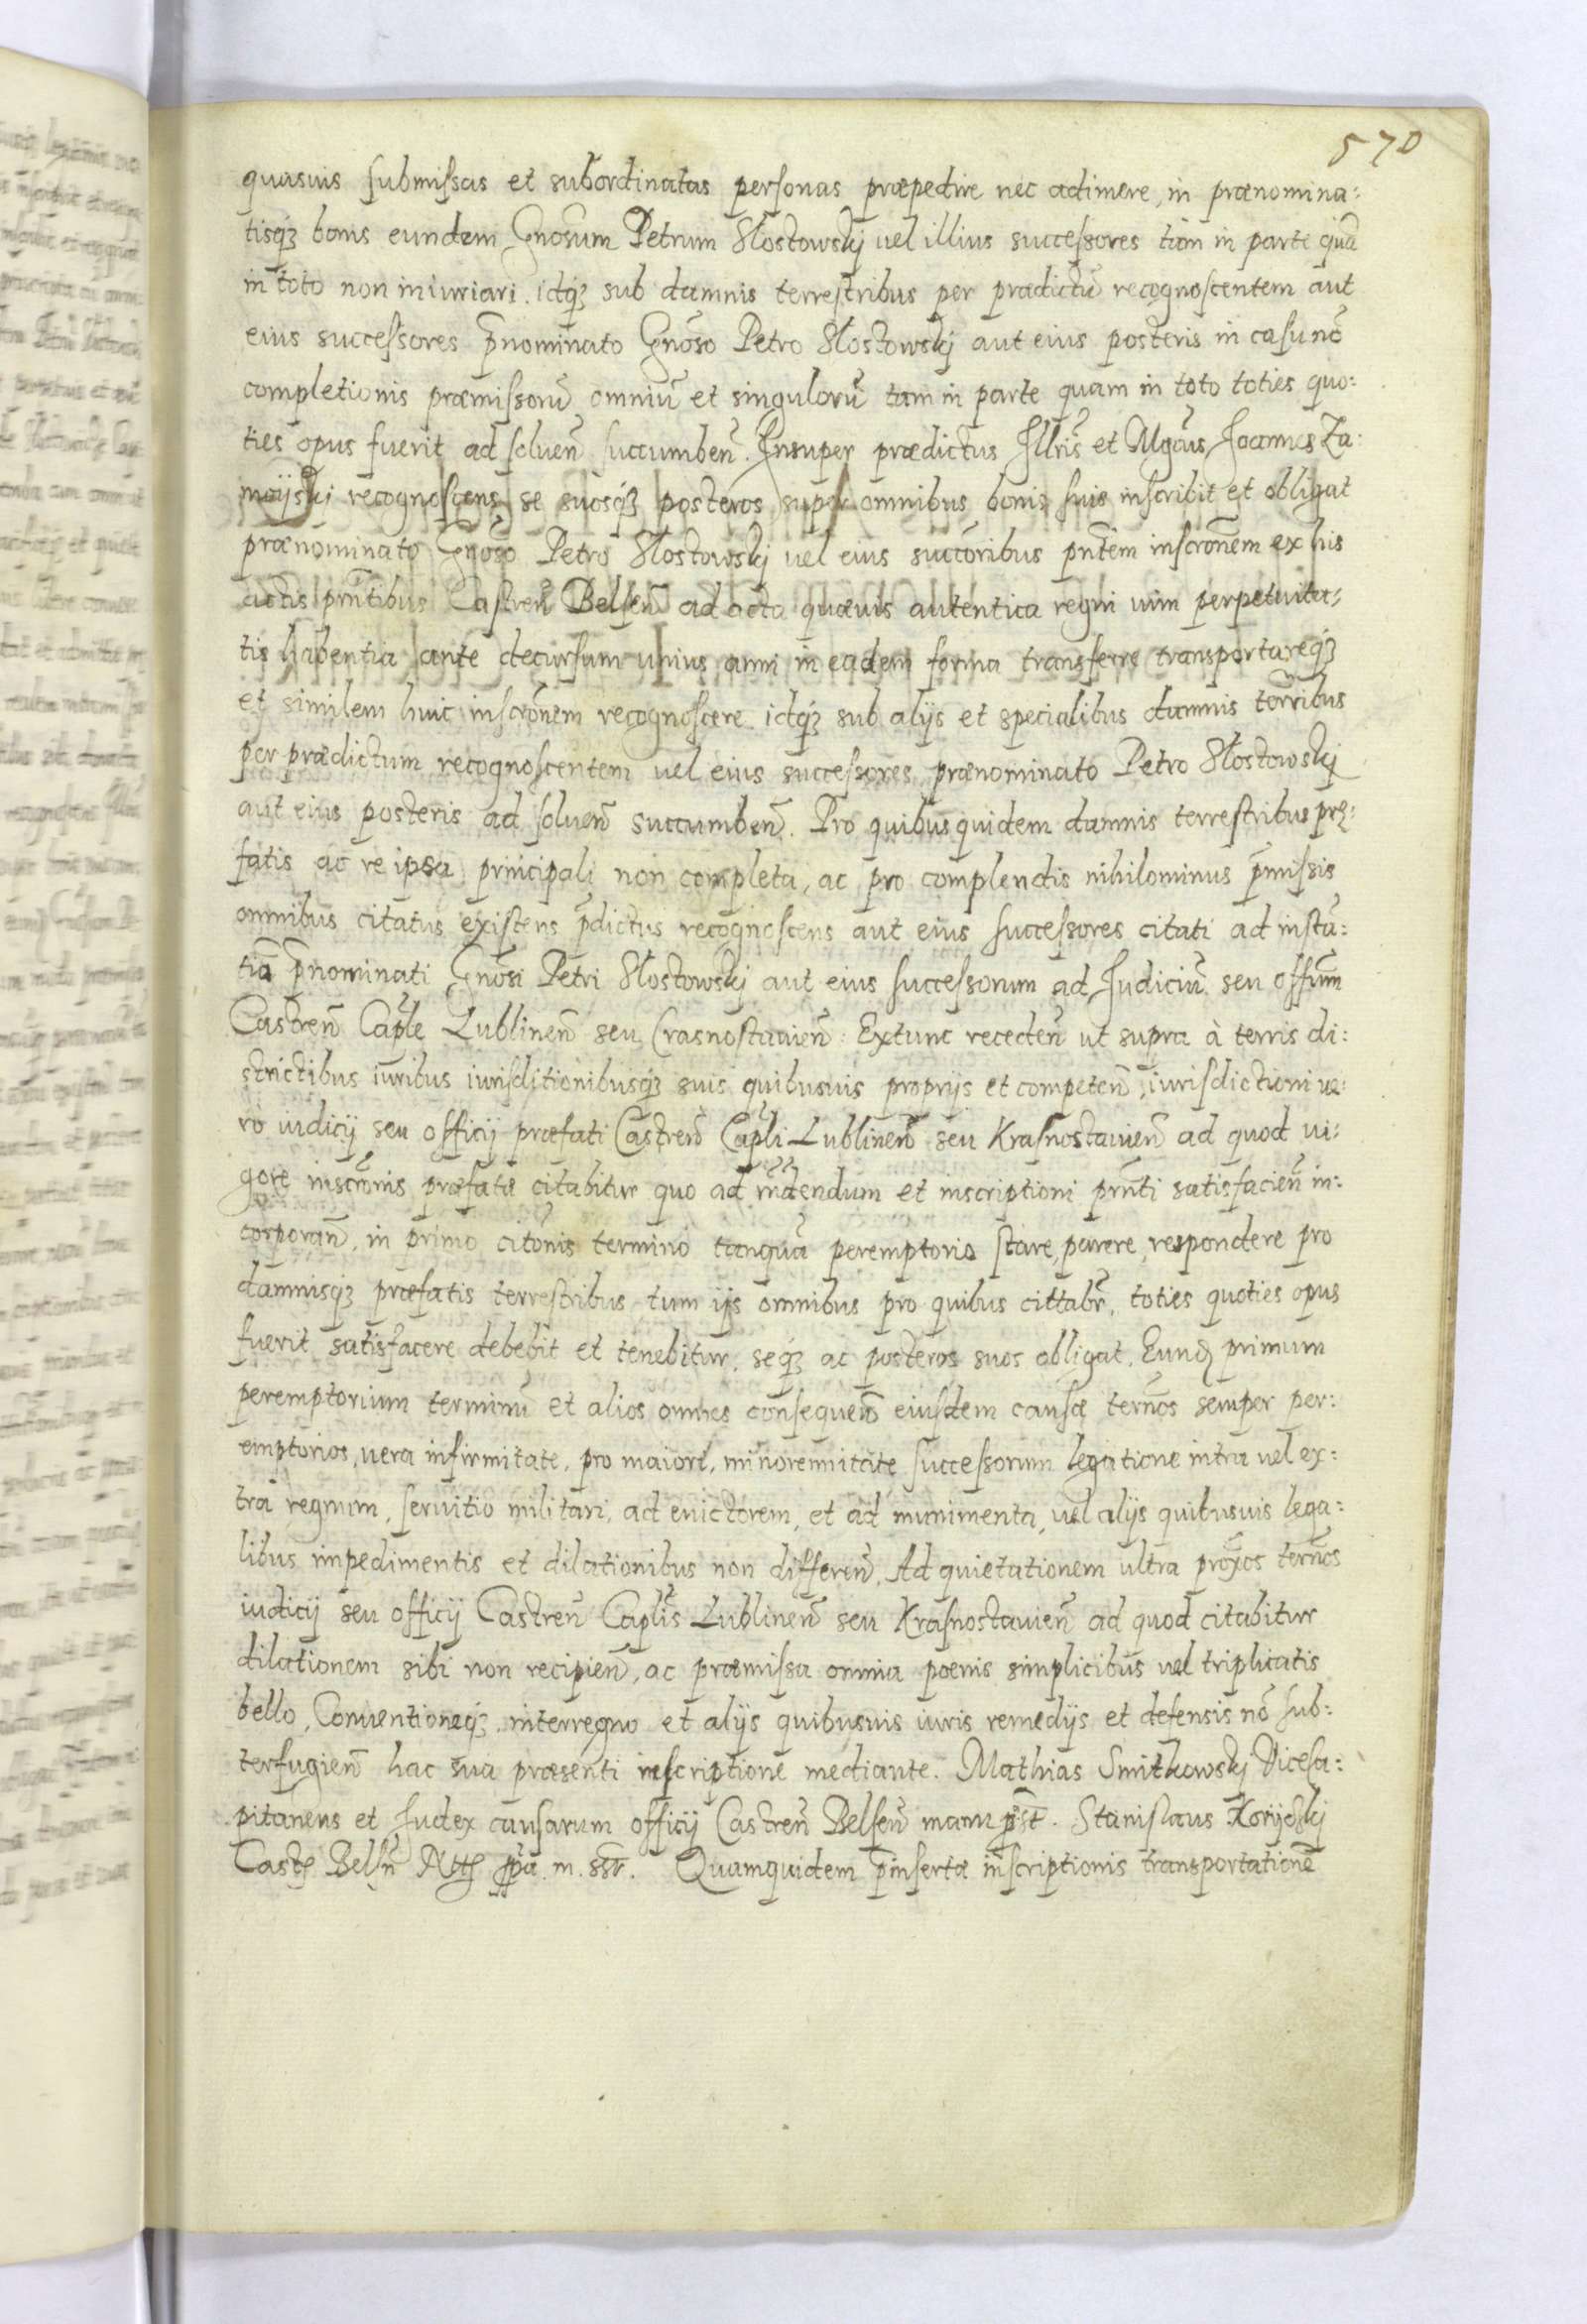 570
quasuis submissas et subordinatas personas præpedire nec adimere, in prænomina:
tisq₃ bonis eundem Gnosum Petrum Kłostowskj uel illius successores tam in parte quā
in toto non iniuriari. idq₃ sub damnis terrestribus per prædictū recognoscentem aut
eius successores p̄nominato Gnōso Petro Kłostowskj aut eius posteris in casu nō
completionis præmissorū omniū et singulorū tam in parte quam in toto toties quo:
ties opus fuerit ad soluen̄ succumben̄. Insuper prædictus Illris et Mgcus Joannes Za:
moijski recognoscens se suosq₃ posteros super omnibus bonis suis inscribit et obligat
prænominato Gnōso Petro Kłostowskj uel eius succoribus pn̄tem inscrōnem ex his
actis pn̄tibus Castren̄ Belsen̄ ad acta quæuis autentica regni uim perpetuita:
tis habentia ante decursum unius anni in eadem forma transferre transportareq₃
et similem huic inscrōnem recognoscere idq₃ sub alijs et specialibus damnis terribus
per prædictum recognoscentem uel eius successores prænominato Petro Kłostowskj
aut eius posteris ad soluen̄ succumben̄. Pro quibus quidem damnis terrestribus prę:
fatis ac re ipsa principali non completa, ac pro complendis nihilominus p̄missis
omnibus citatus existens p̄dictus recognoscens aut eius successores citati ad instā:
tiā p̄nominati Gnōsi Petri Kłostowskj aut eius successorum ad Judiciū seu offum
Castren̄ Caple Lublinen̄ seu Crasnostauien̄. Extunc receden̄ ut supra à terris di:
strictibus iuribus iurisditionibusq₃ suis quibusuis proprijs et competen̄, iurisdictioni ue:
rò iudicij seu officij præfati Castren̄ Capli Lublinen̄ seu Krasnostauien̄ ad quod ui:
gore inscrōnis præfatæ citabitur quo ad rn̄dendum et inscriptioni prn̄ti satisfacien̄ in:
corporan̄, in primo citōnis termino tanquā peremptorio stare, parere, respondere pro
damnisq₃ præfatis terrestribus tum ijs omnibus pro quibus cittabr̄, toties quoties opus
fuerit satisfacere debebit et tenebitur, seq₃ ac posteros suos obligat. Eund primum
peremptorium terminū et alios omnes consequen̄ eiusdem causæ tern̄os semper per:
emptorios, uera infirmitate, pro maiori, minorennitate successorum legatione intra uel ex:
tra regnum, seruitio militari, ad euictorem, et ad munimenta, uel alijs quibusuis lega:
libus impedimentis et dilationibus non differen̄. Ad quietationem ultra prox̄os tern̄os
iudicij seu officij Castren̄ Caplis Lublinen̄ seu Krasnostauien̄ ad quod citabitur
dilationem sibi non recipien̄, ac præmissa omnia pœnis simplicibus uel triplicatis
bello, Conuentioneq₃, interregno et alijs quibusuis iuris remedijs et defensis nō sub:
terfugien̄ hac sua præsenti inscriptione mediante. Mathias Smitkowskj Viceca:
pitaneus et Judex causarum officij Castren̄ Belsen̄ manu p̄st. Stanislaus Korijckj
Castr Belsn̄ Nots ppa. m. ssr. Quamquidem p̄insertæ inscriptionis transportationē